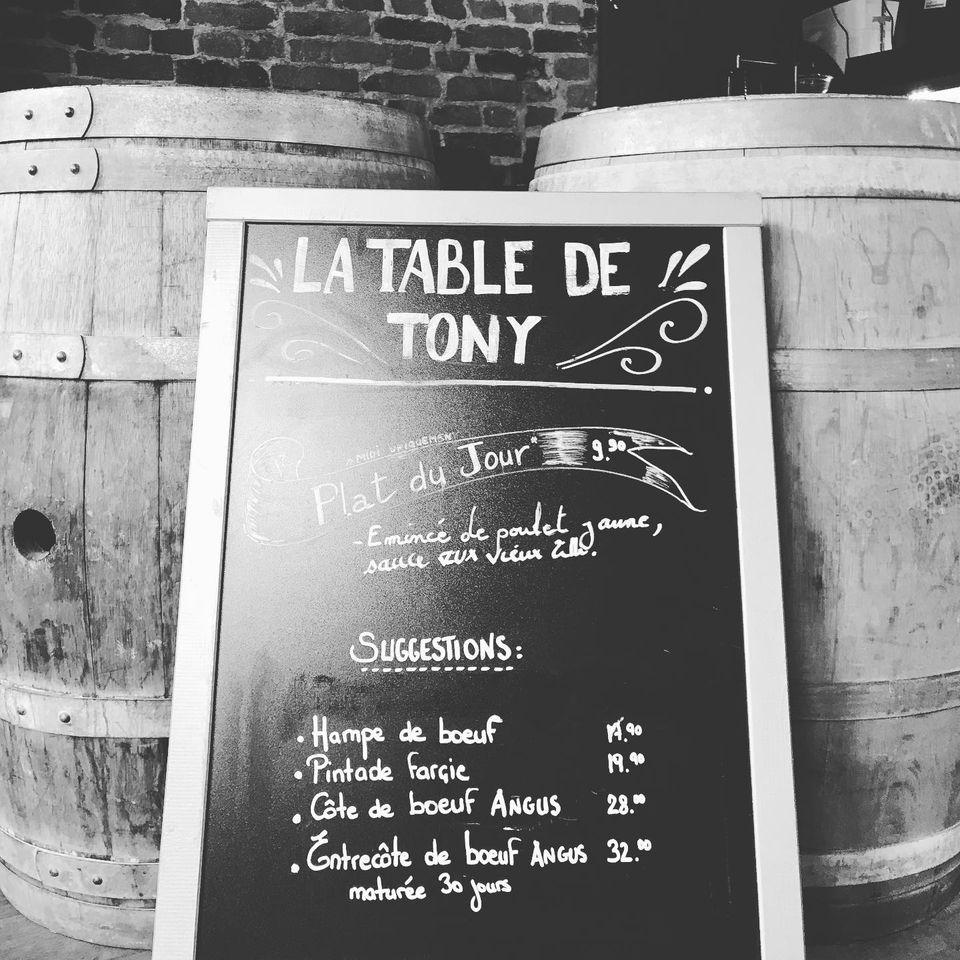 LA TABLE DE
TONY
*MIDI UNIQUEMEN
Plat du Jour* 9.90
- Emincé de poulet jaune,
sauce aux vieux
SUGGESTIONS:
• Hampe de boeuf
• Pintade Farçie 19.90
• Côte de boeuf ANGUS 28.00
• Entrecôte de boeuf ANGUS 32.00
maturée 30 jours